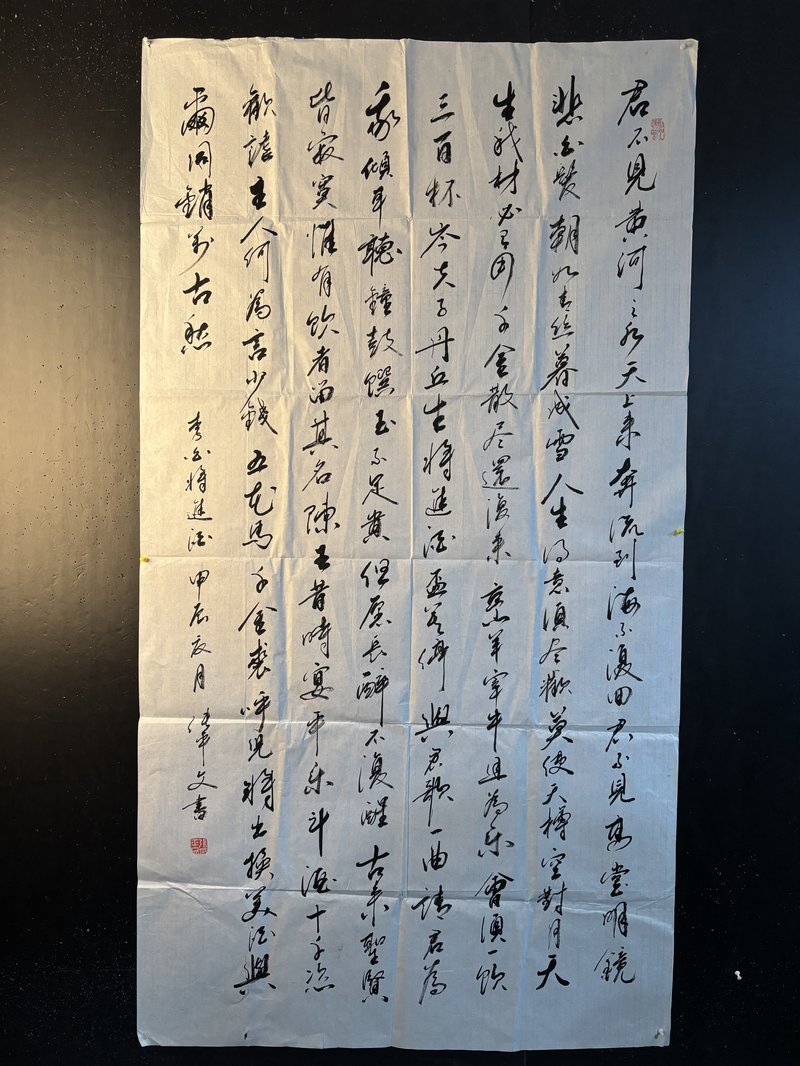 君不見黄河之水天上来奔流到海不復回君不見高堂明鏡
悲白髮朝如青丝暮成雪人生得意須尽歡莫使金樽空對月天
生我材必有用千金散尽還復来烹羊宰牛且為乐會須一饮
三百杯岑夫子丹丘生将進酒杯莫停與君歌一曲請君為
我傾耳聽鐘鼓饌玉不足貴但愿長醉不復醒古来聖賢
皆寂寞惟有饮者留其名陳王昔時宴平乐斗酒十千恣
歡謔主人何為言少錢五花馬千金裘呼児将出换美酒與
爾同銷万古愁
李白将進酒 甲辰夏月 文書